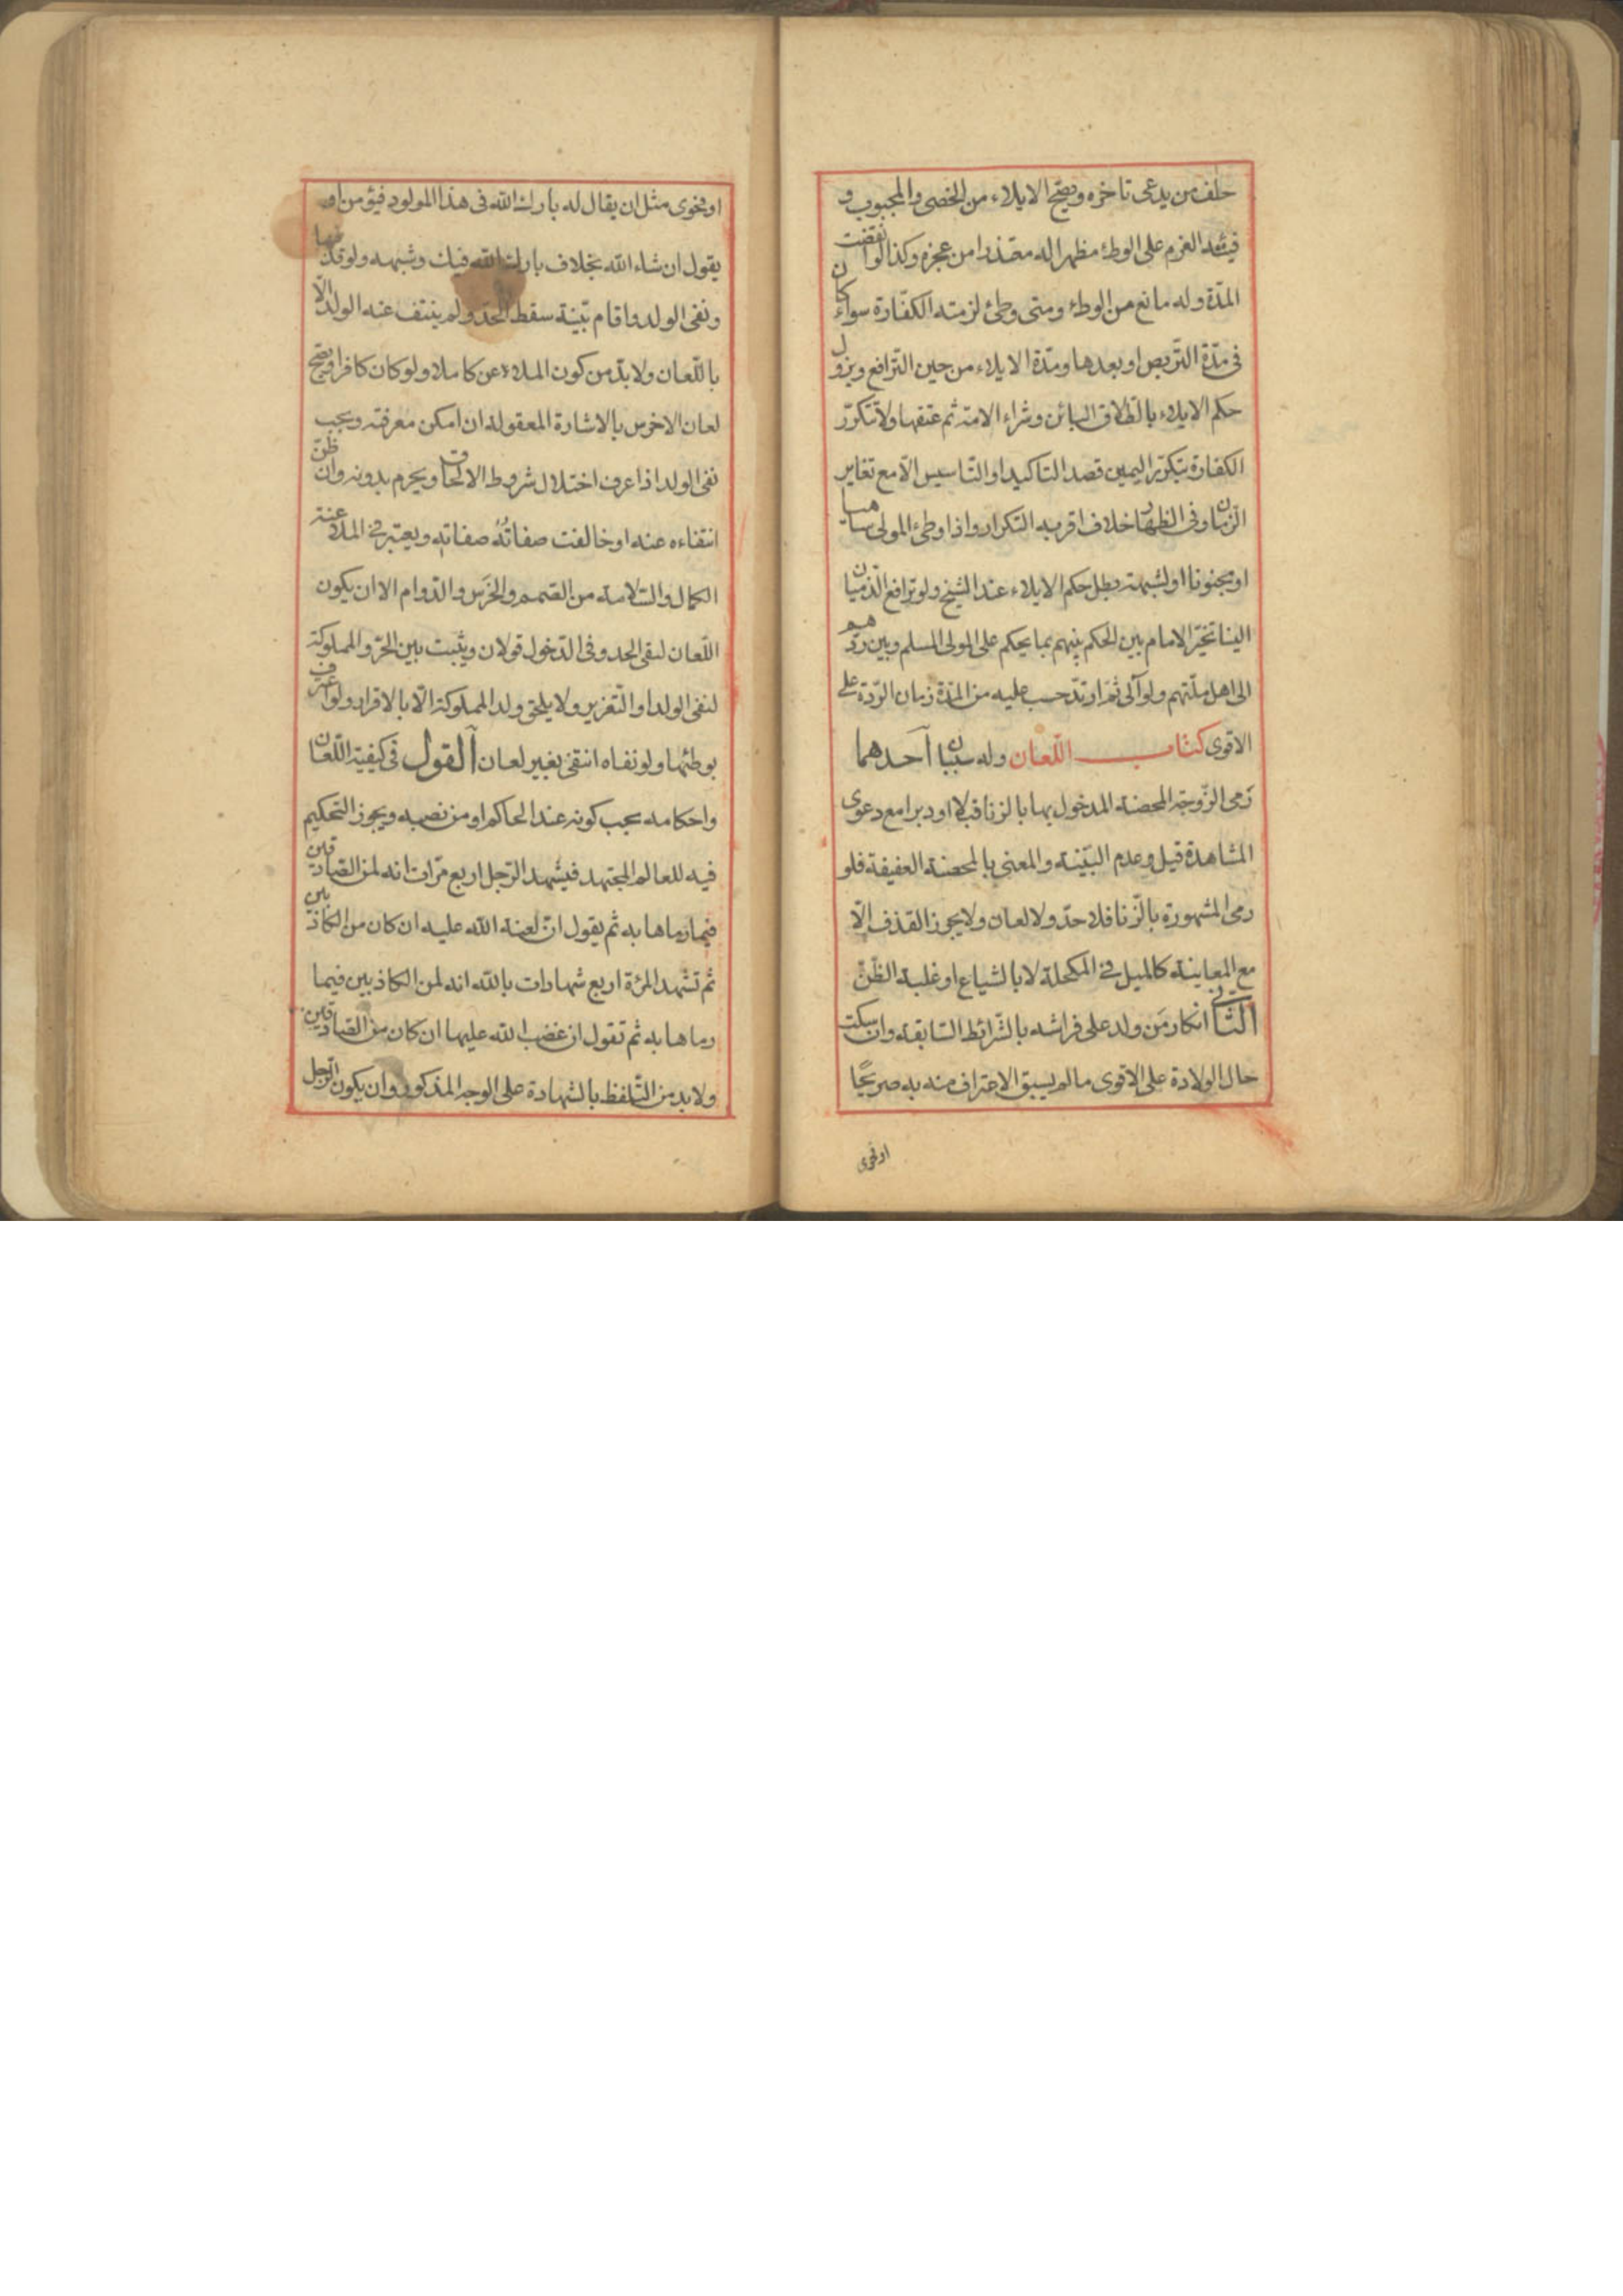 حلف من يدعى تاخره ويصح الايلاء من الخصى والمجبوب و
فيئته العزم على الوطئ مظهرا له معتذرا من عجزه وكذا لو انقضت
المدّة وله مانع من الوطئ ومتى وطئ لزمته الكفّارة سواء كان
فى مدّة التربص او بعدها ومدّة الايلاء من حين الترافع ويزول
حكم الايلاء بالطلاق البائن وشراء الامة ثم عتقها ولا تتكرّر
الكفارة بتكرّر اليمين قصد التاكيد او التاسيس الّا مع تغاير
الزّمان وفى الظهار خلاف اقربه التكرار واذا وطئ المولى ساهيا
او مجنونا او لشبهة بطل حكم الايلاء عند الشيخ ولو ترافع الذّميان
الينا تخيّر الامام بين الحكم بينهم بما يحكم على المولى المسلم وبين ردّهم
الى اهل ملّتهم ولو آلى ثم ارتدّ حسب عليه من المدّة زمان الرّدة على
الاقوى كتاب اللّعان وله سببان احدهما
رمى الزّوجة المحصنة المدخول بها بالزنا قبلا او دبرا مع دعوى
المشاهدة قيل وعدم البيّنة والمعنى بالمحصنة العفيفة فلو
رمى المشهورة بالزّنا فلا حدّ ولا لعان ولا يجوز القذف الّا
مع المعاينة كالميل فى المكحلة لا بالشياع او غلبة الظّنّ
الثّانى انكار مَن ولد على فراشه بالشّرائط السّابقة وان سكت
حال الولادة على الاقوى ما لم يسبق الاعتراف منه به صريحًا
او فحوى
او فحوى مثل ان يقال له بارك الله فى هذا المولود فيؤمن او
يقول ان شاء الله بخلاف بارك الله فيك وشبهه ولو قذفها
ونفى الولد واقام بيّنة سقط الحدّ ولم ينتف عنه الولد الّا
باللّعان ولا بدّ من كون الملاعن كاملا ولو كان كافرا ويصح
لعان الاخرس بالاشارة المعقولة ان امكن معرفته ويجب
نفى الولد اذا عرف اختلال شروط الالحاق ويحرم بدونه وان ظنّ
انتفاءه عنه او خالفت صفاتُهُ صفاتِهِ ويعتبر فى الملاعنة
الكمال والسّلامة من الصّمم والخَرَس والدّوام الا ان يكون
اللّعان لنفى الحد وفى الدّخول قولان ويثبت بين الحرّ والمملوكة
لنفى الولد او التّعزير ولا يلحق ولد المملوكة الّا بالاقرار ولو اعترف
بوطئها ولو نفاه انتفى بغير لعان القول فى كيفيّة اللّعان
واحكامه يجب كونه عند الحاكم او من نصبه ويجوز التحكيم
فيه للعالم المجتهد فيشهد الرّجل اربع مرّات انه لمن الصّادقين
فيما رماها به ثم يقول انّ لعنة الله عليه ان كان من الكاذبين
ثم تشهد المرئة اربع شهادات بالله انه لمن الكاذبين فيما
رماها به ثم تقول ان غضب الله عليها ان كان من الصّادقين
ولا بد من التّلفظ بالشهادة على الوجه المذكور وان يكون الرّجل